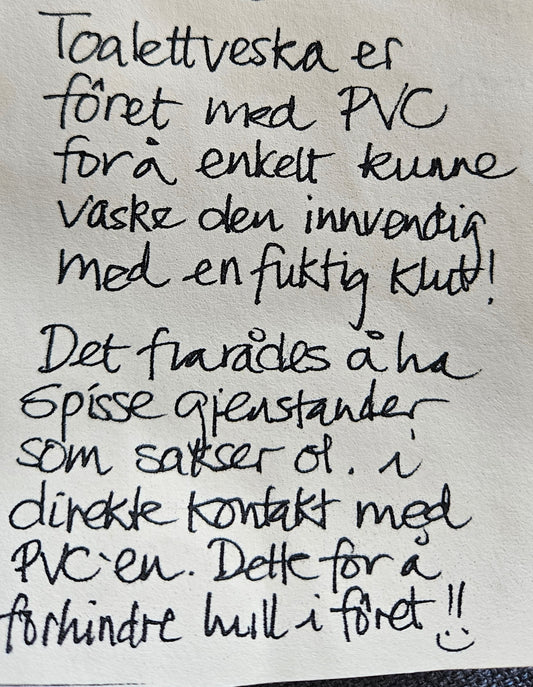 Toalettveska er
fôret med PVC
for å enkelt kunne
vaske den innvendig
med en fuktig klut!
Det frarådes å ha
spisse gjenstander
som sakser ol. i
direkte kontakt med
PVC-en. Dette for å
forhindre hull i fôret!!